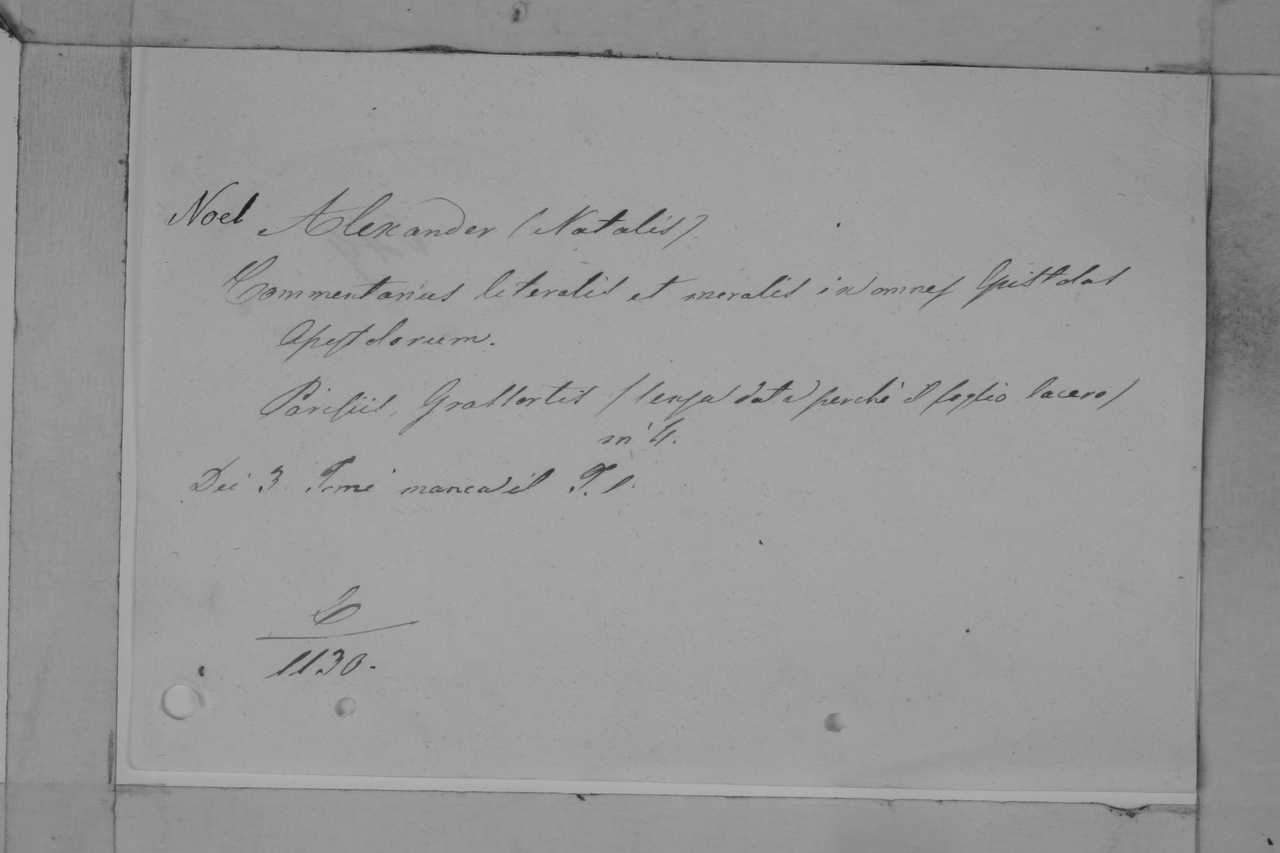 Noel Alexander (Natalis).
Commentarius literalis et moralis in omnes Epistolas
Apostolorum.
Parisiis, (senza data perchè il foglio lacero)
in 4.
Dei 3 Tomi manca il T. 1.
1130.